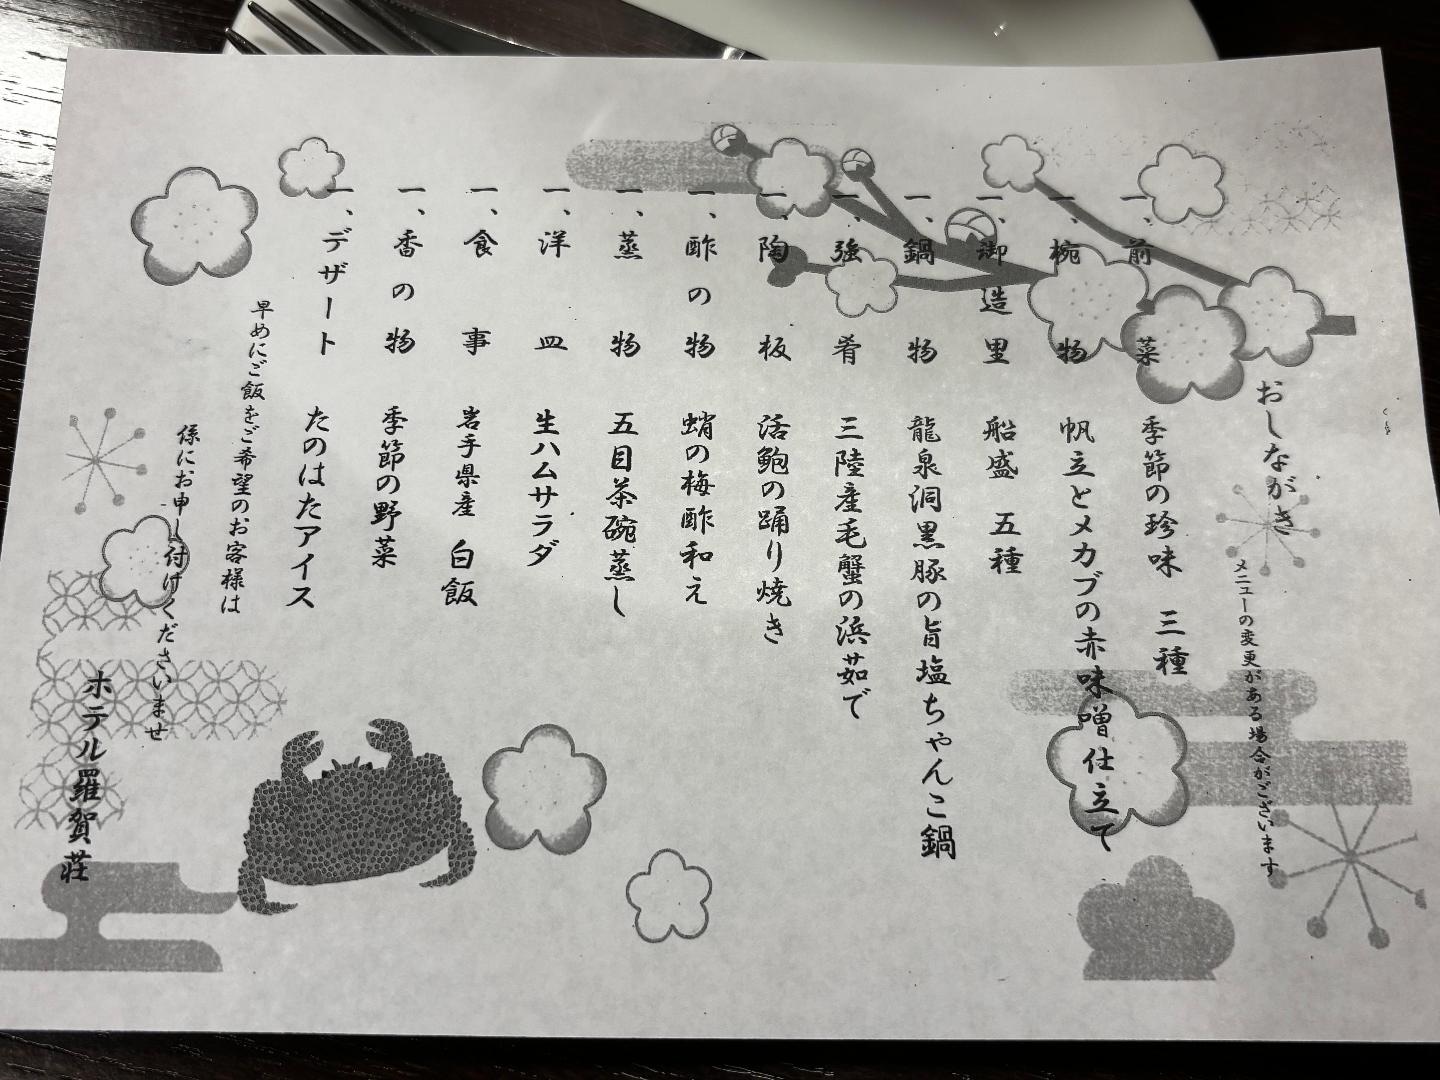 おしながき
メニューの変更がある場合がございます
一、前菜 季節の珍味 三種
一、椀物 帆立とメカブの赤味噌仕立て
一、御造里 船盛 五種
一、鍋物 龍泉洞黒豚の旨塩ちゃんこ鍋
一、強肴 三陸産毛蟹の浜茹で
一、陶板 活鮑の踊り焼き
一、酢の物 蛸の梅酢和え
一、蒸物 五目茶碗蒸し
一、洋皿 生ハムサラダ
一、食事 岩手県産 白飯
一、香の物 季節の野菜
一、デザート たのはたアイス
早めにご飯をご希望のお客様は
係にお申し付けくださいませ
ホテル羅賀荘